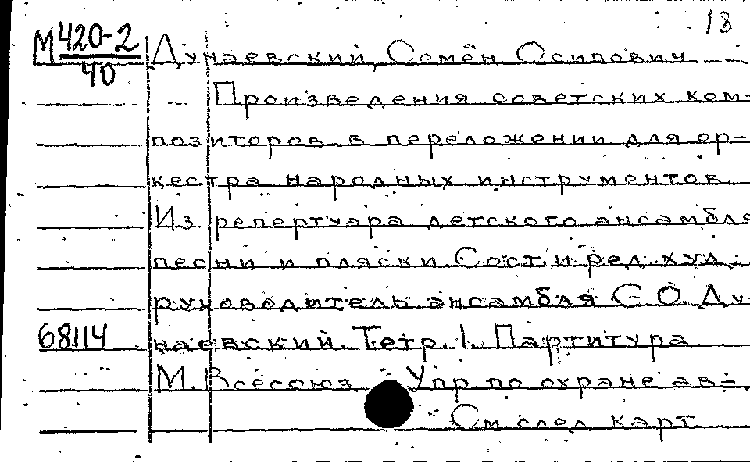 13
М 420-2
40
Дунаевский, Семён Осипович
Произведения советских ком-
позиторов в переложении для ор-
кестра народных инструментов
Из репертуара детского ансамбля
песни и пляски Сост. и ред. худ.
руководитель ансамбля С. О. Ду
68114 наевский. Тетр. 1. Партитура
М. Всесоюз. Упр по охране ав-
См след карт